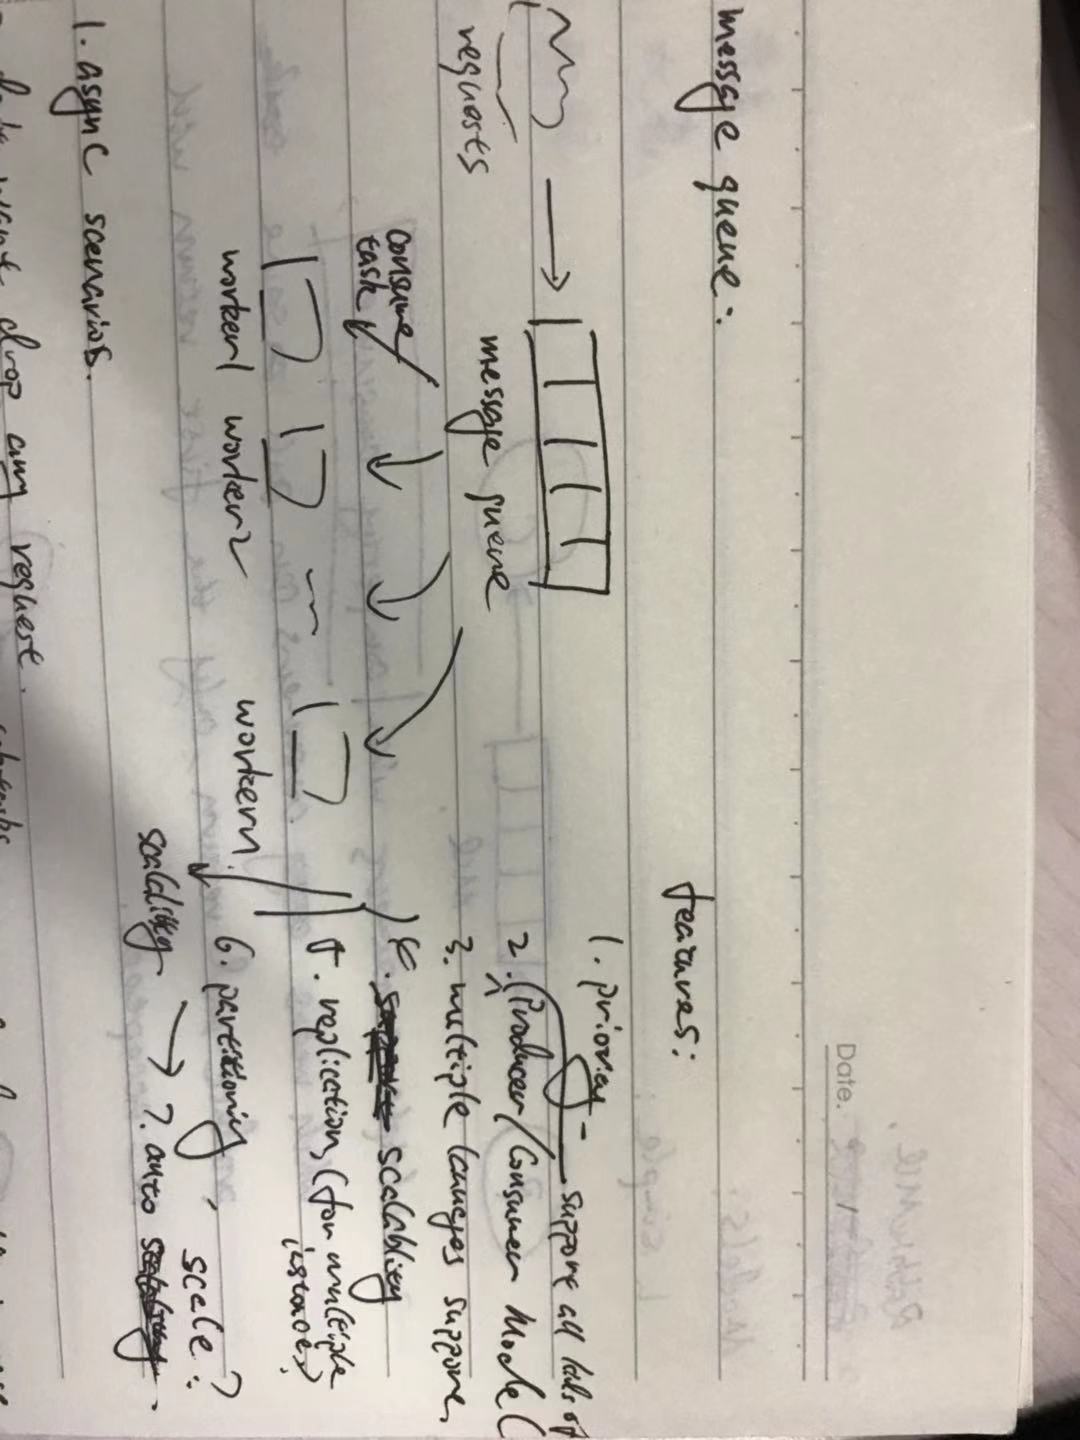 Date.
message queue:
features:
requests
message queue
consume
task
worker1 worker2 workern
1. priority - support all
2. (Producer/Consumer Model)
3. multiple languages support,
4. scalability
5. replication, (for multiple
instances)
6. partitioning, scale?
scalability → 7. auto
1. async scenarios.
want drop any request.